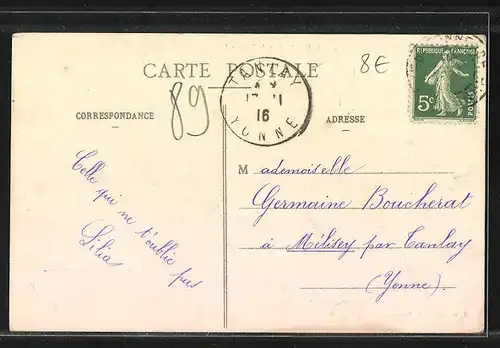 8€
CARTE POSTALE
89
TANLAY
16
YONNE
REPUBLIQUE FRANÇAISE
5c
POSTES
CORRESPONDANCE
ADRESSE
Celle qui ne t'oublie pas
Lilia
Mademoiselle
Germaine Boucherat
à Mélisey par Tanlay
(Yonne).